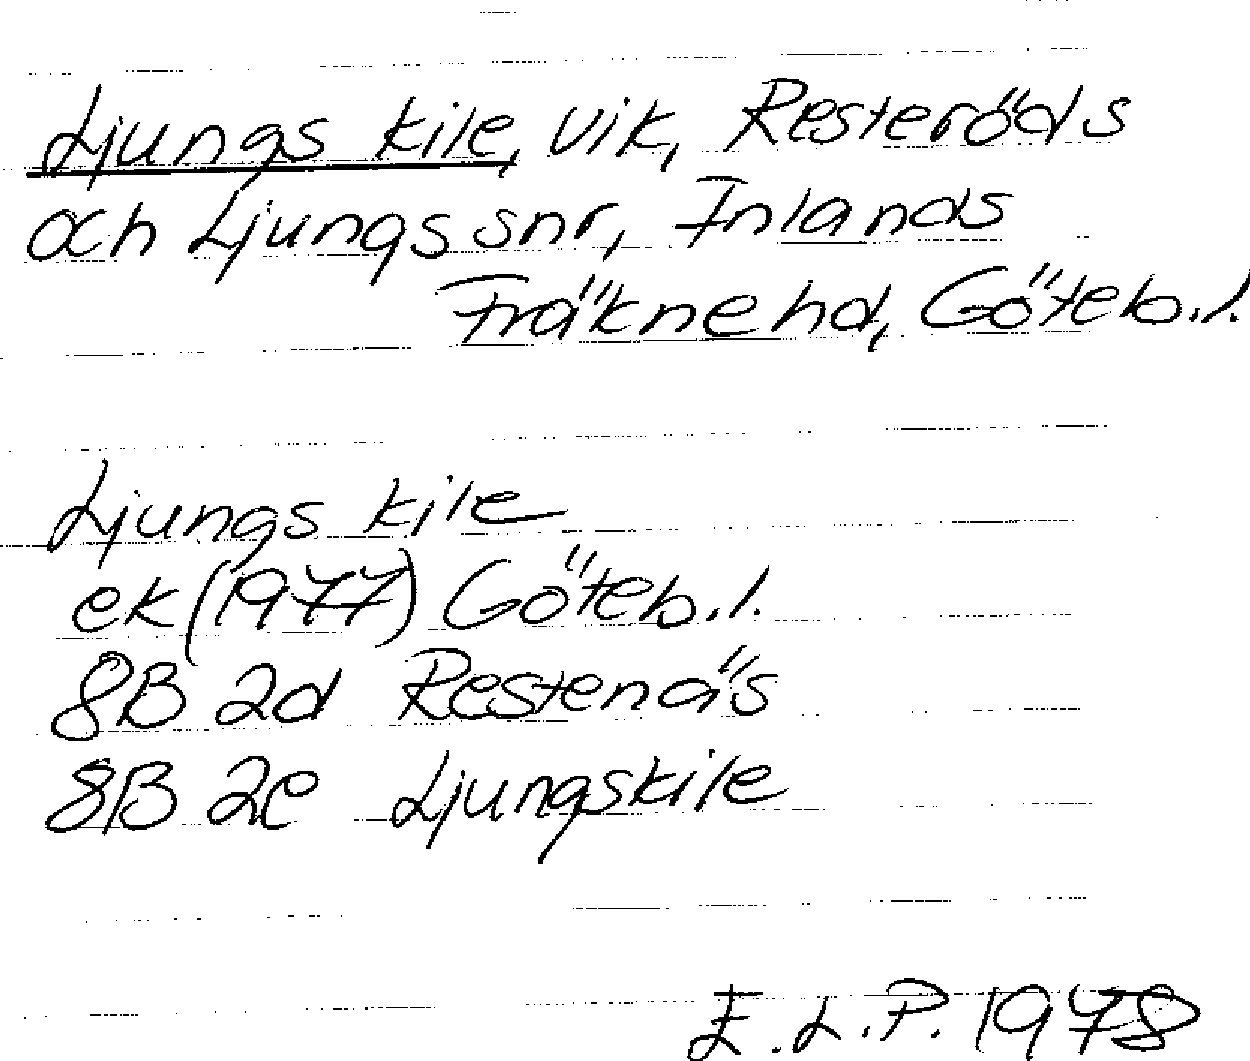 Ljungs kile, vik, Resteröds
och Ljungs snr, Inlands
Fräkne hd, Göteb.l.
Ljungs kile
ek (1977) Göteb.l.
8B 2d Restenäs
8B 2e Ljungskile
E.L.P. 1978